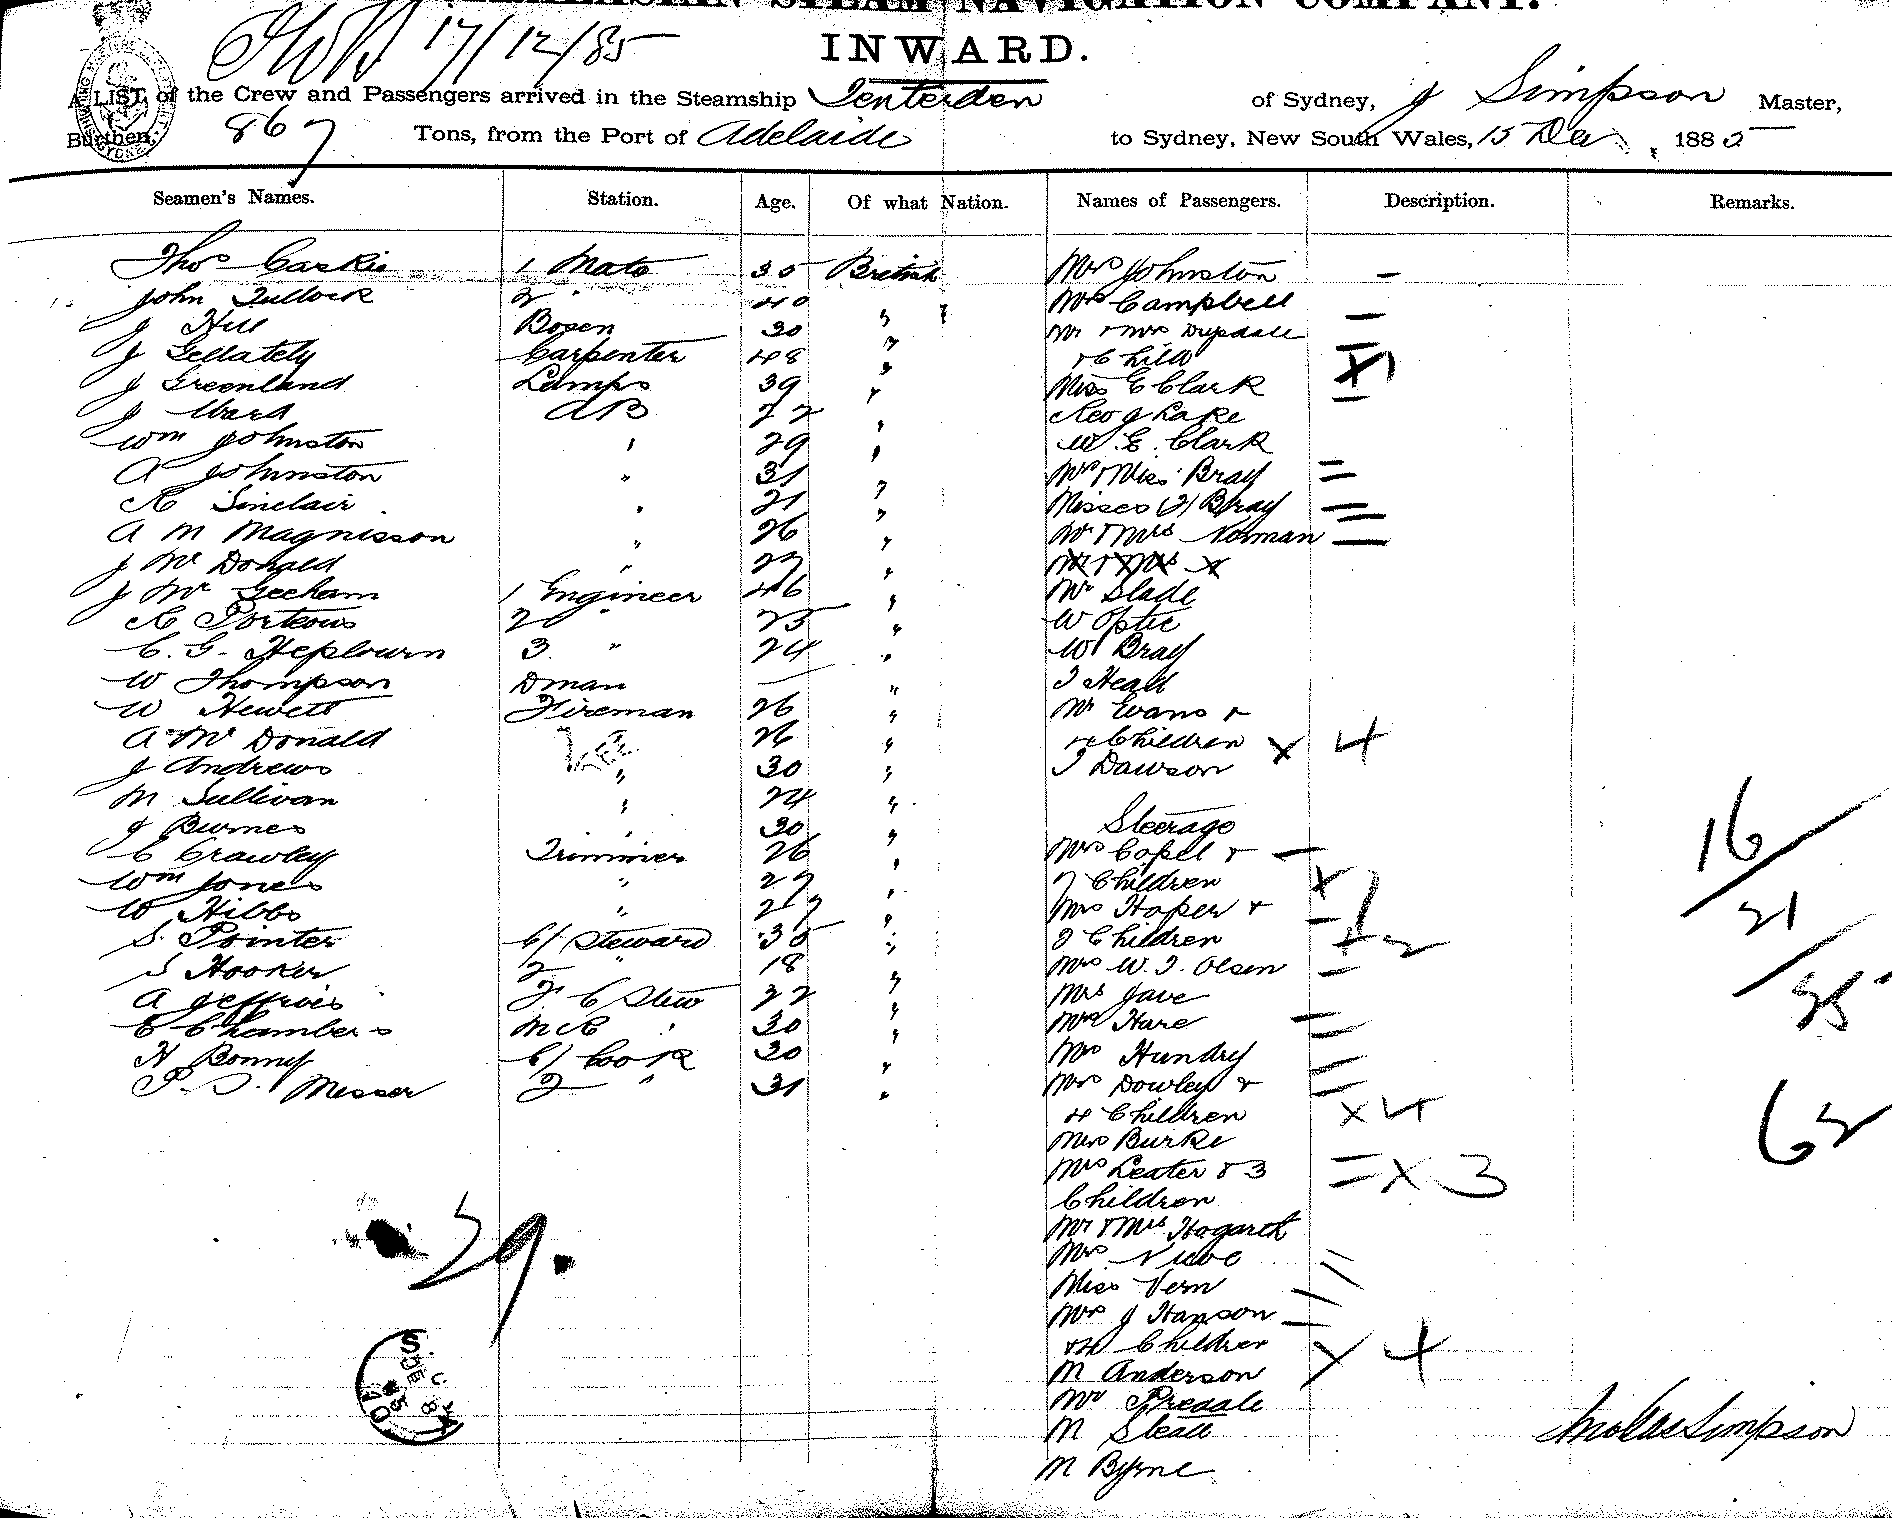 STEAM NAVIGATION COMPANY.
17/12/85
INWARD.
A LIST of the Crew and Passengers arrived in the Steamship Tenterden of Sydney, J Simpson Master,
Burthen, 867 Tons, from the Port of Adelaide to Sydney, New South Wales, 15 Dec 1885
Seamen's Names. Station. Age. Of what Nation. Names of Passengers. Description. Remarks.
Thos Caskie 1 Mate 35 British Mrs Johnston
John Tullock 2 " 40 " Mrs Campbell
J Hill Bosen 30 " Mr & Mrs
J Gellately Carpenter 48 " & Child X 1
J Greenland Lamps 39 " Miss E Clark
J Ward AB 22 " Rev J Lake
Wm Johnston " 29 " W. E. Clark
A Johnston " 31 " Mrs & Miss Bray
R Sinclair " 21 " Misses (2) Bray
A M Magnisson " 26 " Mr & Mrs Norman
J McDonald " 27 " Mr & Mrs
J McGeeham 1 Engineer 46 " Mr Slade
R Porteous 2 " 25 " W Optie
C. G. Heplourn 3 " 24 " W Bray
W Thompson Dman " T Head
W Hewett Fireman 26 " Mr Evans &
A McDonald 26 " 4 Children X 4
J Andrews " 30 " T Dawson
M Sullivan " 24 "
J Burnes " 30 " Steerage
C Crawley Trimmer 26 " Mrs Copel &
Wm Jones " 27 " Children X 1
W Hibbs " 27 " Mrs Hoper &
S. Pointer C/ Steward 35 " 2 Children X 2
S Hooker 2 " 18 " Mrs W. T. Olsen
A Jeffries F. C Stew 22 " Mrs Jave
C Chambers M C " 30 " Mrs Hare
H Bonny C/ Cook 30 " Mrs Hundry
P. D. Messer 2 " 31 " Mrs Dowley &
4 Children X 4
Mrs Burke
Mrs Leater & 3 X 3
Children
Mr & Mrs Hogarth
Mrs
Miss Vern
Mrs J Hanson
& 4 Children X 4
M Anderson
Mr
M Stead
M Byrne
16
21
25
62
29.
Simpson